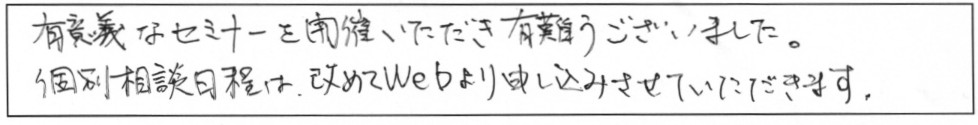 有意義なセミナーを開催いただき有難うございました。
個別相談日程は、改めてWebより申し込みさせていただきます。